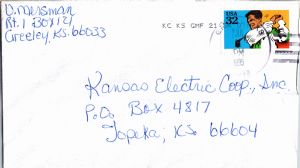 D. Meisman
Rt. 1 Box 121
Greeley, KS. 66033
KC KS GMF
USA
32
Kansas Electric Coop., Inc.
P.O. Box 4817
Topeka, KS 66604